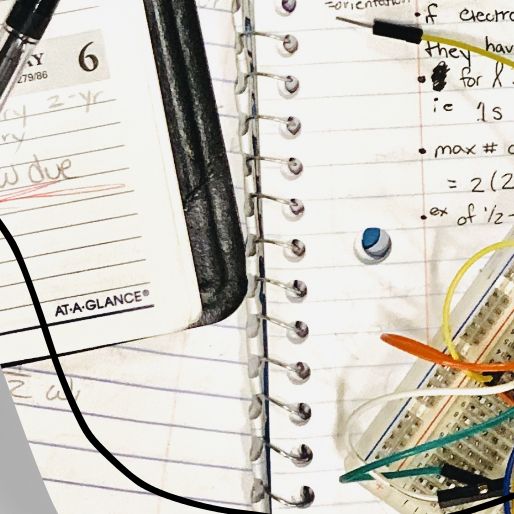 AY 6
279/86
ry 2-yr
ry
w due
AT·A·GLANCE®
orientation
• if electro
they hav
• for l
ie 1s
• max # o
= 2(2
• ex of 1/2-